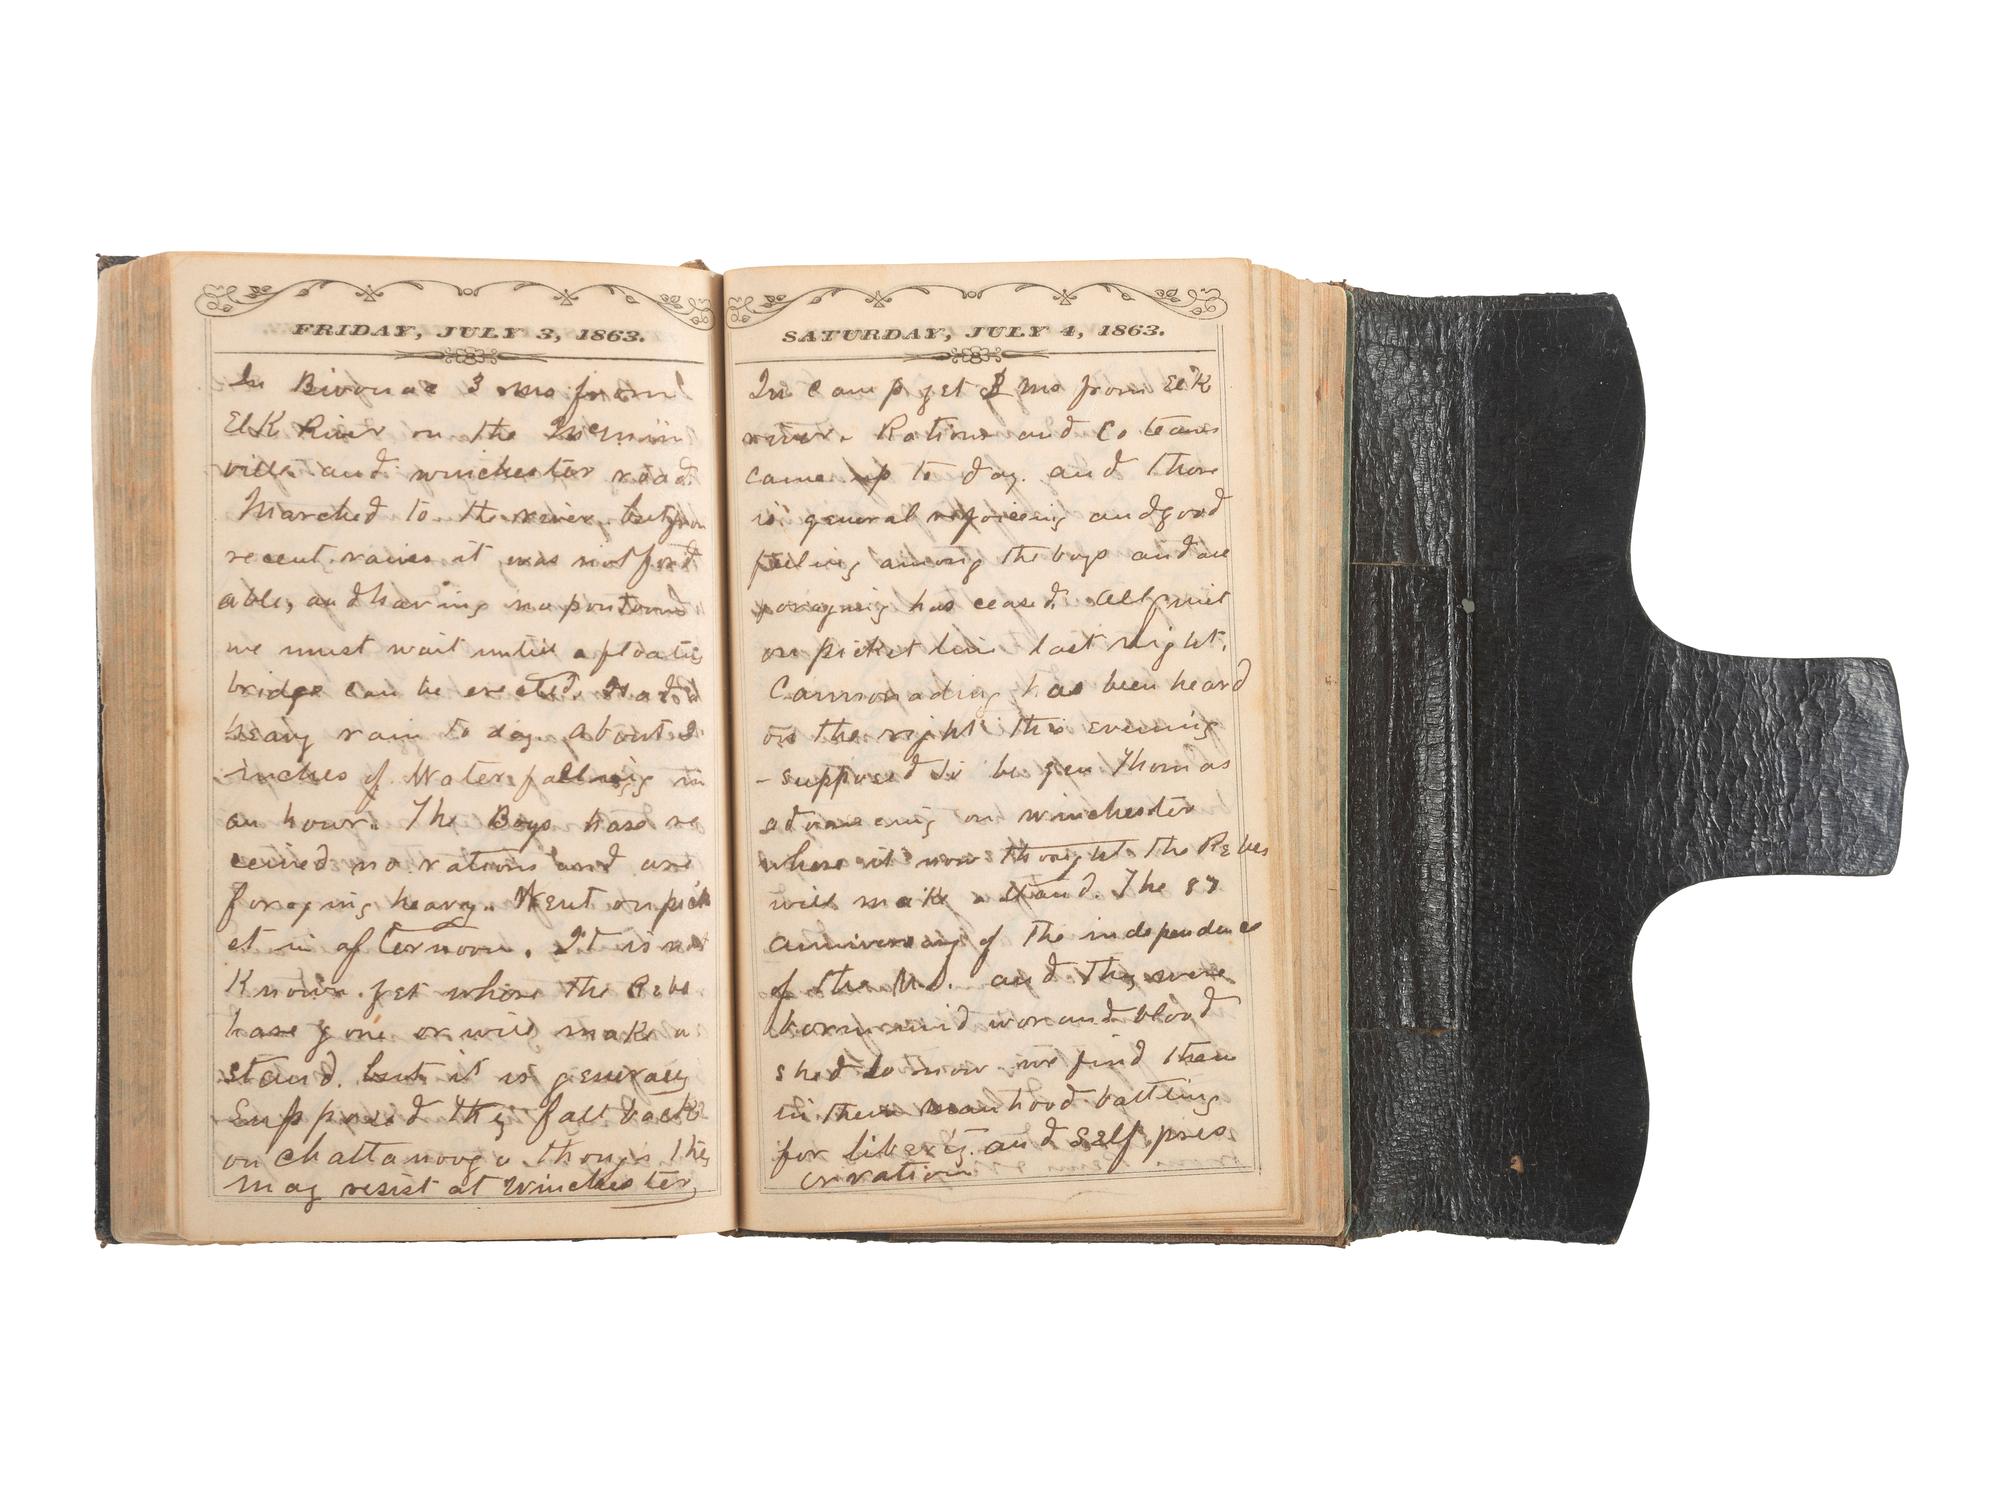 FRIDAY, JULY 3, 1863.
In Bivouac 3 ms from
Elk River on the McMinn
ville and winchester road
Marched to the river. but from
recent raines it was not ford
able, and having no pontoons
we must wait untill a floating
bridge can be erected. Had a
heavy rain to day. about 2
inches of Water falling in
an hour. The Boys have re
ceived no rations and are
foraging heavy. Went on pick
et in afternoon. It is not
Known yet where the Rebs
have gone or will make a
stand. but it is generaly
Supposed they fall back
on chattanooga though they
may resist at Winchester
SATURDAY, JULY 4, 1863.
In camp yet 3 ms from Elk
river. Rations and Co teams
came up to day. and there
is general rejoiceing and good
feeling among the boys and all
forageing has ceased. All quiet
on picket line last night.
Cannonading has been heard
on the right this evening
- supposed to be gen Thomas
advanceing on winchester
where it now thought the Rebes
will make a stand. The 87
anniversary of the independence
of the U.S. and they were
born amid war and blood
shed so now we find them
in their manhood battling
for liberty. and self pres
ervation